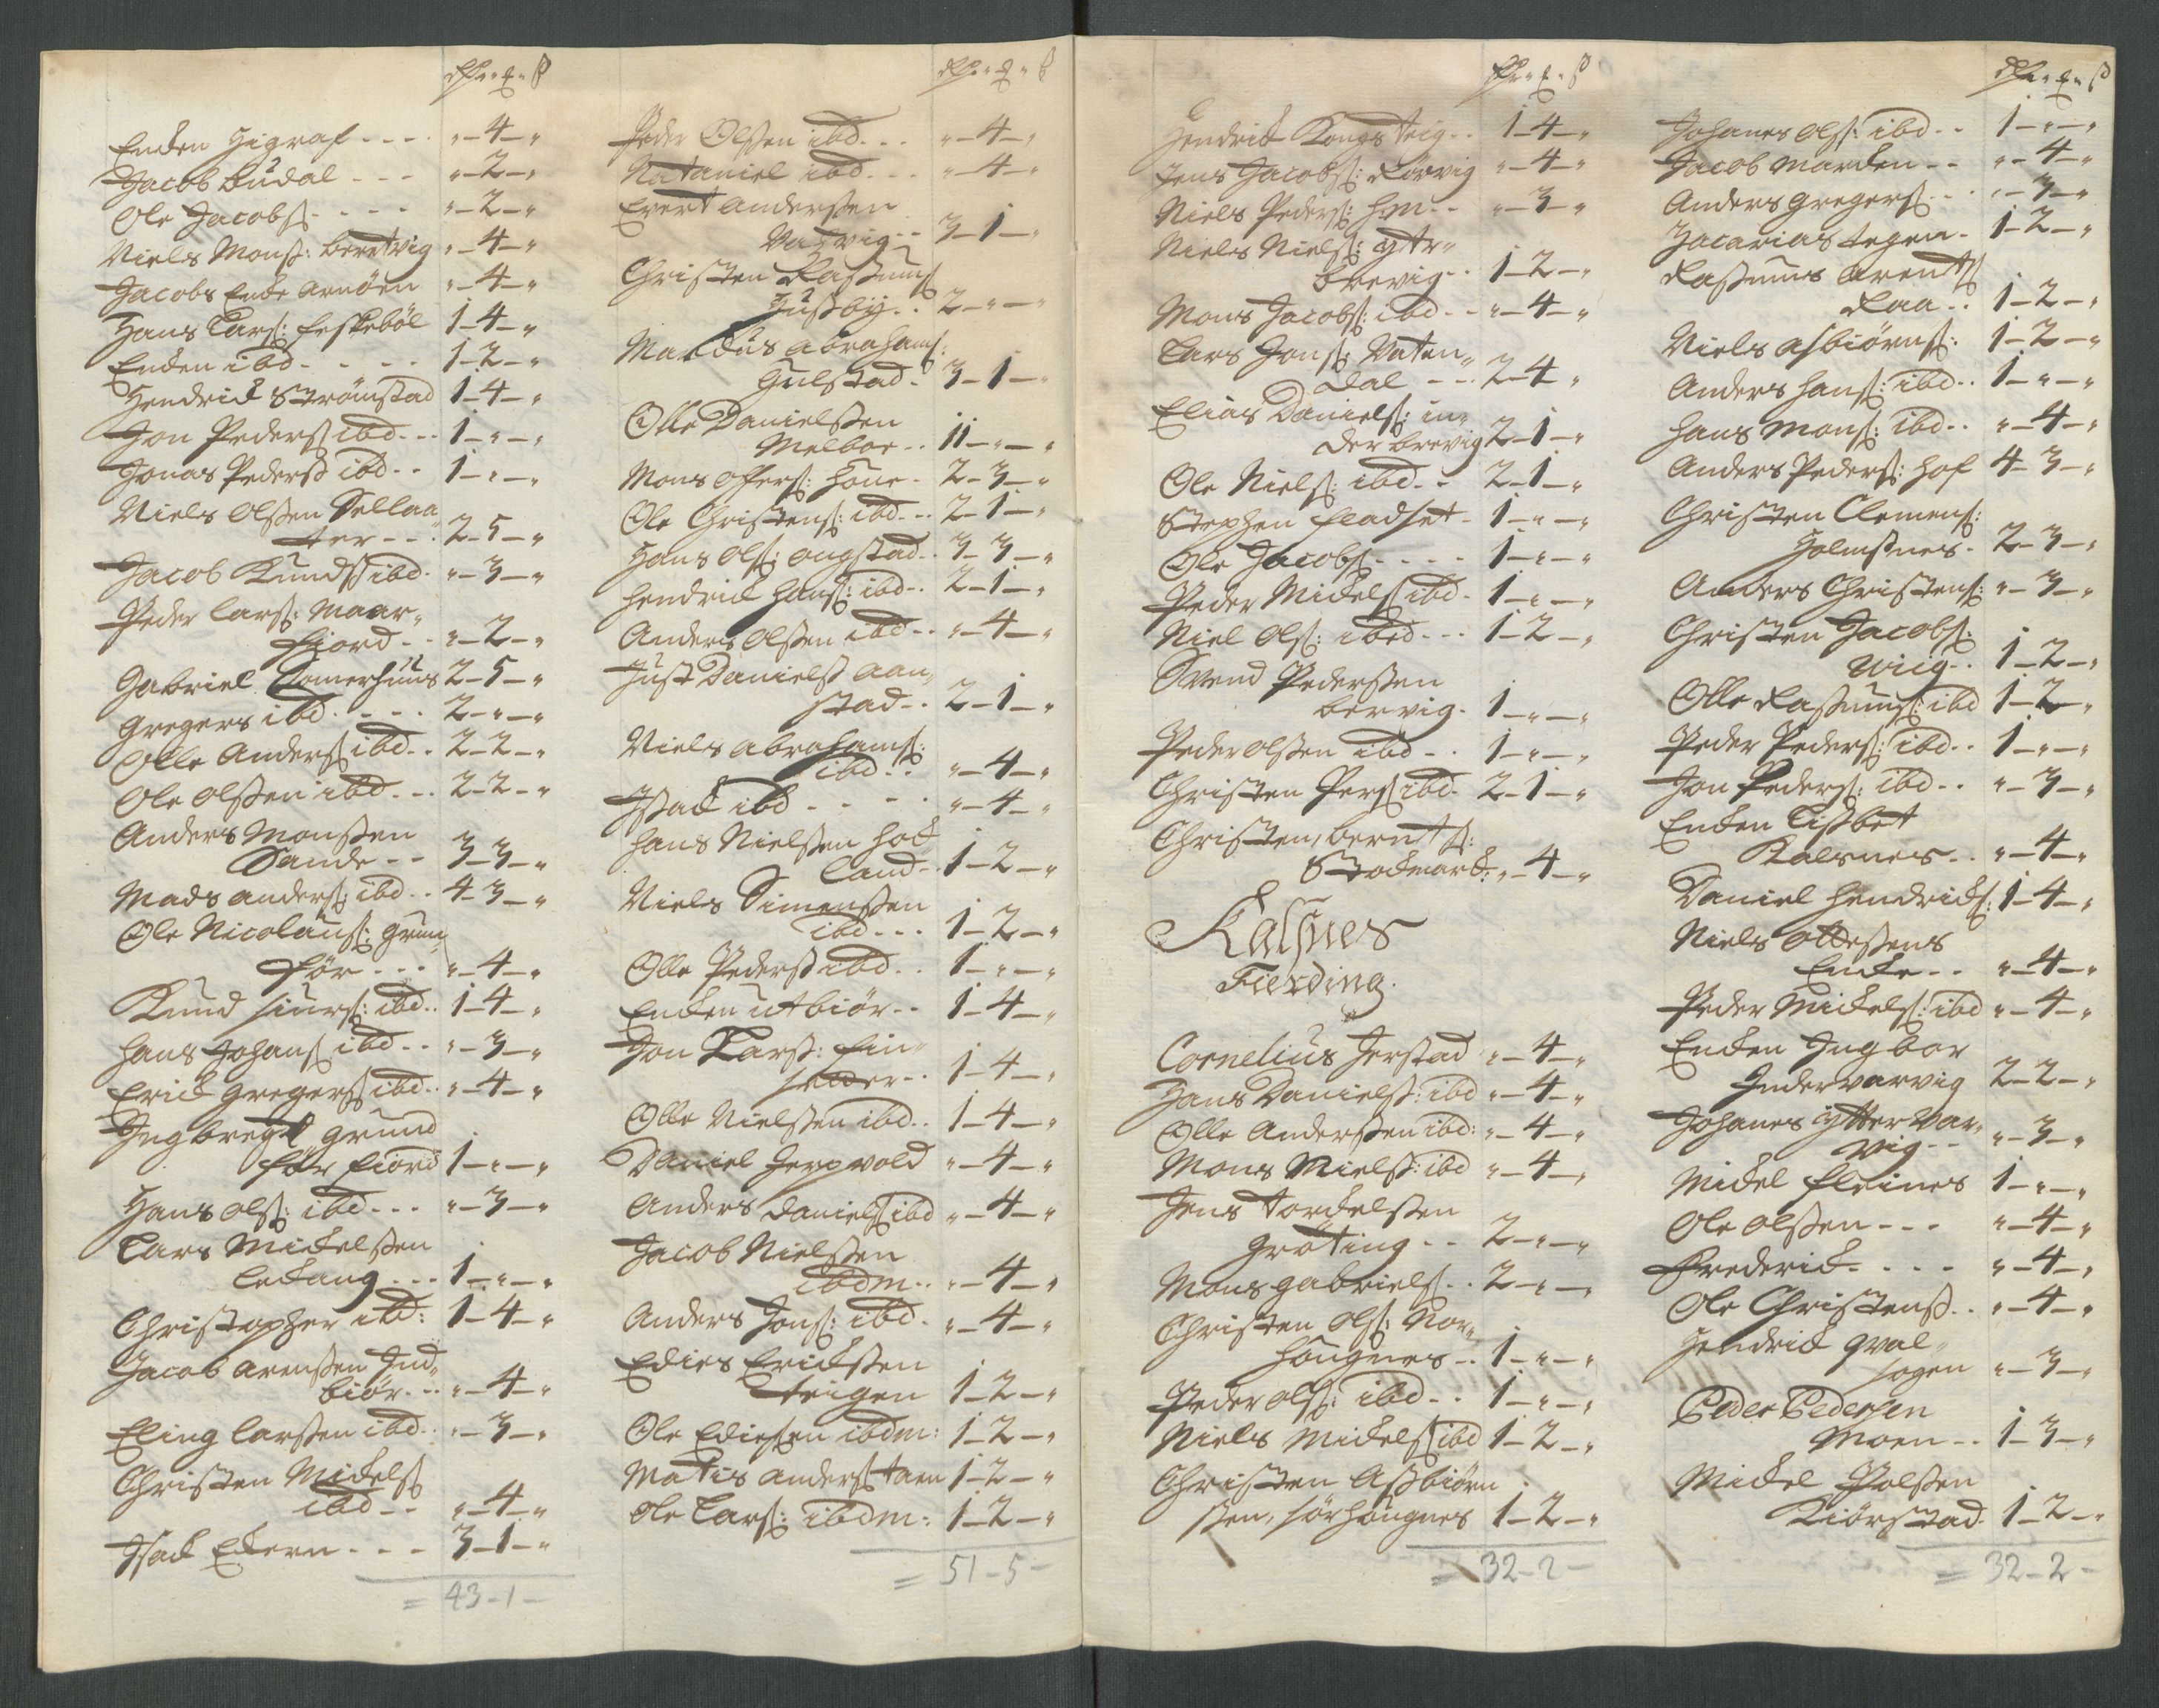 Encken Higraf - - - - „ - 4 - „
Jacob Budal - - - „ - 2 - „
Ole Jacobs: - - - - „ - 2 - „
Niels Mons: beretvig „ - 4 - „
Jacobs Encke Arnöen „ - 4 - „
Hans Lars: Eeskebôl 1 - 4 - „
Encken ibd - - - - 1 - 2 - „
Hendrick Strömstad 1 - 4 - „
Jon Peders: ibd - - - 1 - „ - „
Jonas Peders: ibd - - 1 - „ - „
Niels Olssen Sellaa„
ter - - - 2 - 5 - „
Jacob Knuds: ibd - „ - 3 - „
Peder Lars: Maar„
fiord - - „ - 2 - „
Gabriel Somerhuus 2 - 5 - „
Gregers ibd - - - - 2 - „ - „
Olle Anders: ibd - - 2 - 2 - „
Ole Olssen ibd - - - 2 - 2 - „
Anders Monssen
Sande - - 3 - 3 - „
Mads Anders: ibd - - 4 - 3 - „
Ole Nicolaus: Grun„
för - - - „ - 4 - „
Knud Siurs: ibd - - 1 - 4 - „
Hans Johans: ibd - - „ - 3 - „
Erick Gregers: ibd - - „ - 4 - „
Ingbregt Grund
för fiord 1 - „ - „
Hans Ols: ibd - - - „ - 3 - „
Lars Mickelssen
Leckang - - - 1 - „ - „
Christopher ibd: 1 - 4 - „
Jacob Arenssen Ind„
biör - - - „ - 4 - „
Eling Larssen ibd - - „ - 3 - „
Christen Mickels:
ibd - - „ - 4 - „
Isack Eckern - - - 3 - 1 - „
= 43 - 1 -
Peder Olssen ibd - - - „ - 4 - „
Nataniel ibd - - - „ - 4 - „
Evert Anderssen
Vadvig - - 3 - 1 - „
Christen Rasmus:
Husbÿ - - 2 - „ - „
Marckus Abrahams:
Gulstad - 3 - 1 - „
Olle Danielssen
Melboe - - 11 - „ - „
Mons Offers: Höne - 2 - 3 - „
Ole Christens: ibd - - 2 - 1 - „
Hans Ols: Ongstad - - 3 - 3 - „
Hendrick Hans: ibd - - 2 - 1 - „
Anders Olssen ibd - - „ - 4 - „
Just Daniels: Aan„
stad - - 2 - 1 - „
Niels Abrahams:
ibd - - „ - 4 - „
Isack ibd - - - - „ - 4 - „
Hans Nielssen Hock
land - - 1 - 2 - „
Niels Simenssen
ibd - - - 1 - 2 - „
Olle Peders: ibd - - 1 - „ - „
Encken Utbiör - - 1 - 4 - „
Jon Lars: Ein„
setter - - 1 - 4 - „
Olle Nielssen ibd - - 1 - 4 - „
Daniel Herpvold „ - 4 - „
Anders Daniels: ibd „ - 4 - „
Jacob Nielssen
ibdm - - „ - 4 - „
Anders Jons: ibd - „ - 4 - „
Edies Erickssen
Teigen 1 - 2 - „
Ole Ediessen ibdm: 1 - 2 - „
Matis Anders: taen 1 - 2 - „
Ole Lars: ibdm: 1 - 2 - „
= 51 - 5 -
Hendrick Kongsteig - - 1 - 4 - „
Jens Jacobs: Rörvig „ - 4 - „
Niels Peders: hm - - „ - 3 - „
Niels Niels: ytr„
brevig - - 1 - 2 - „
Mons Jacobs: ibd - - „ - 4 - „
Lars Jons: Vaten„
dal - - - 2 - 4 - „
Elias Daniels: in„
der brevig 2 - 1 - „
Ole Niels: ibd - - 2 - 1 - „
Stephen fladset - 1 - „ - „
Ole Jacobs: - - - - 1 - „ - „
Peder Mickels: ibd - 1 - „ - „
Niel Ols: ibd - - - 1 - 2 - „
Svend Pederssen
bervig - 1 - „ - „
Peder Olssen ibd - - 1 - „ - „
Christen Pers: ibd - 2 - 1 - „
Christen bernts:
Stockmarck: „ - 4 - „
Kalsnes
Fierding.
Cornelius Jerstad „ - 4 - „
Hans Daniels: ibd „ - 4 - „
Olle Anderssen ibd: „ - 4 - „
Mons Niels: ibd „ - 4 - „
Jens Torckelssen
Gröting - - 2 - „ - „
Mons Gabriels: - - 2 - „ - „
Christen Ols: Nor„
höugnes - - 1 - „ - „
Peder Ols: ibd - - 1 - „ - „
Niels Mickels: ibd 1 - 2 - „
Christen Assbiörn
ssen, sörhöugnes 1 - 2 - „
= 32 - 2 -
Johanes Ols: ibd - - 1 - „ - „
Jacob Marcken - - „ - 4 - „
Anders Gregers: - - „ - 3 - „
Zacarias tegen - 1 - 2 - „
Rasmus Arents:
Raa - - 1 - 2 - „
Niels Asbiörns: 1 - 2 - „
Anders Hans: ibd - - 1 - „ - „
Hans Mons: ibd - - „ - 4 - „
Anders Peders: Hof 4 - 3 - „
Christen Clemens:
Holmsnes - 2 - 3 - „
Anders Christens: „ - 3 - „
Christen Jacobs:
Wiig - - 1 - 2 - „
Olle Rasmus: ibd 1 - 2 - „
Peder Peders: ibd - - 1 - „ - „
Jon Peders: ibd - - „ - 3 - „
Encken Lisbet
Kalsnes - - „ - 4 - „
Daniel Hendricks: 1 - 4 - „
Niels Ottessens
Encke - - „ - 4 - „
Peder Mickels: ibd „ - 4 - „
Encken Ingbor
Indervarvig 2 - 2 - „
Johanes ÿtter Var„
vig - - „ - 3 - „
Mickel Fleines 1 - „ - „
Ole Olssen - - - „ - 4 - „
Frederick - - - - „ - 4 - „
Ole Christens: - - „ - 4 - „
Hendrick Qval„
sogen „ - 3 - „
Peder Pedersen
Moen - - 1 - 3 - „
Mickel Polssen
Kiörstad - 1 - 2 - „
= 32 - 2 -